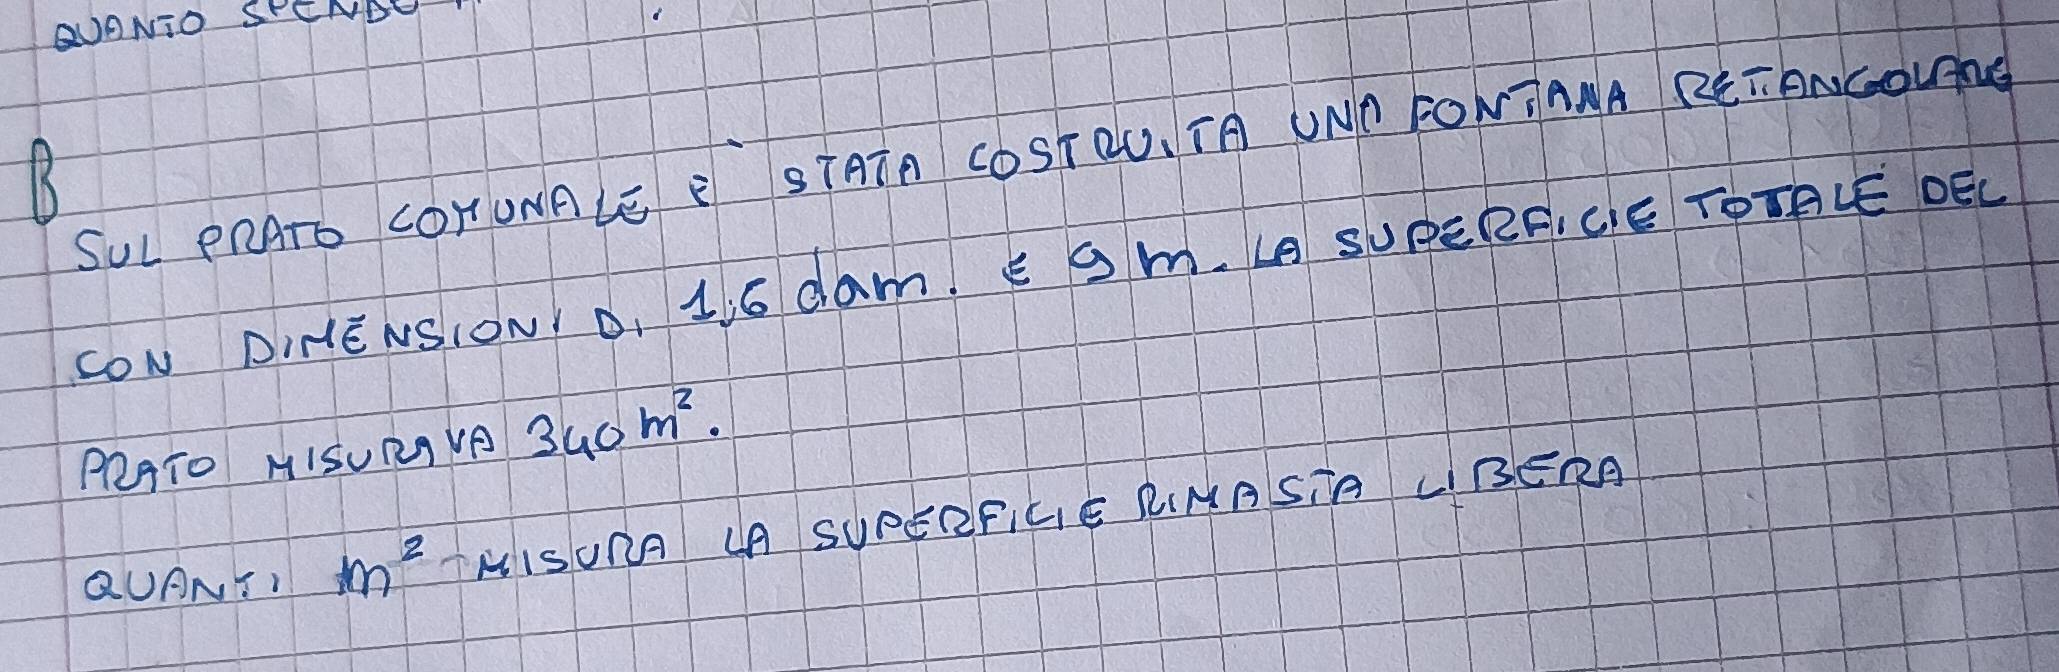 QUANTO SPENDO
B
SUL PRATO COMUNALE È STATA COSTRUITA UNA FONTANA RETTANGOLARE
CON DIMENSIONI DI 1,6 dam. E 9 m. LA SUPERFICIE TOTALE DEL
PRATO MISURAVA 340 m².
QUANTI m² MISURA LA SUPERFICIE RIMASTA LIBERA